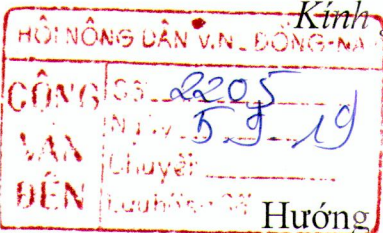 Kính
HỘI NÔNG DÂN V.N - ĐỒNG NAI
CÔNG VĂN ĐẾN
Số 2205
Ngày 5.9.19
Chuyển
Lưu hồ sơ số
Hướng